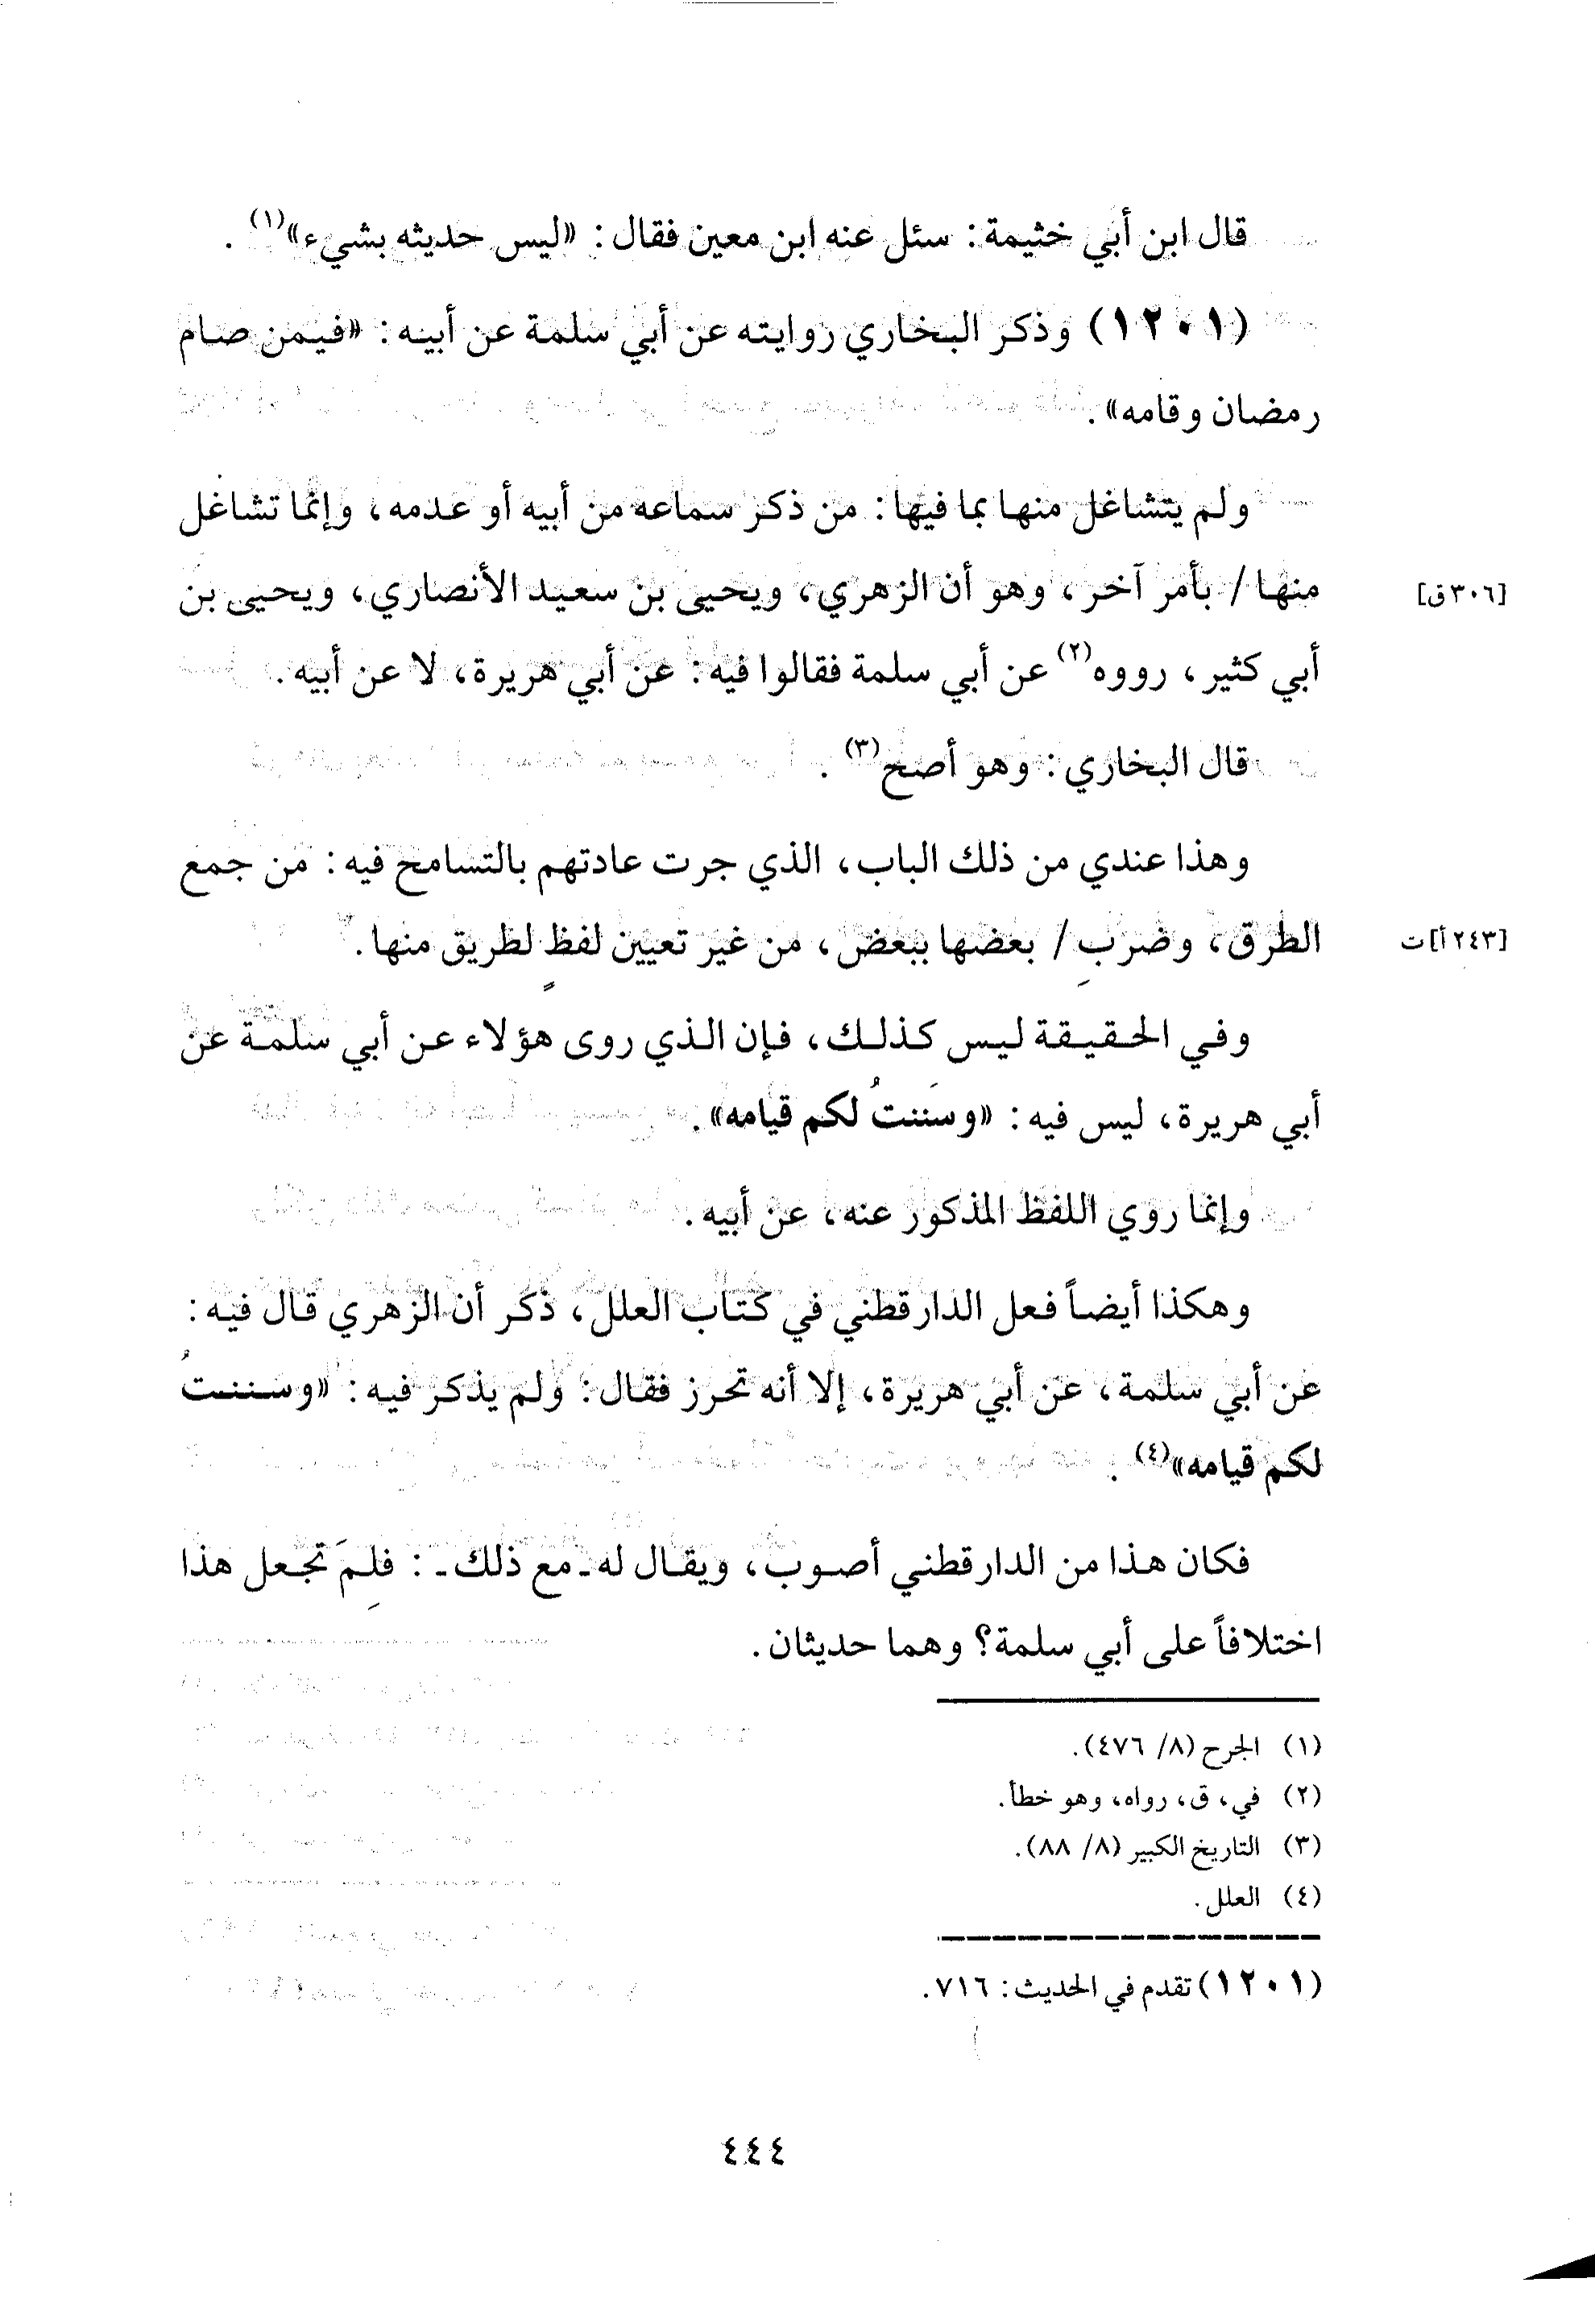 قال ابن أبي خثيمة: سئل عنه ابن معين فقال: «ليس حديثه بشيء»(١).
(١٢٠١) وذكر البخاري روايته عن أبي سلمة عن أبيه: «فيمن صام
رمضان وقامه».
ولم يتشاغل منها بما فيها: من ذكر سماعه من أبيه أو عدمه، وإنما تشاغل
منها / بأمر آخر، وهو أن الزهري، ويحيى بن سعيد الأنصاري، ويحيى بن [٣٠٦ق]
أبي كثير، رووه(٢) عن أبي سلمة فقالوا فيه: عن أبي هريرة، لا عن أبيه.
قال البخاري: وهو أصح(٣).
وهذا عندي من ذلك الباب، الذي جرت عادتهم بالتسامح فيه: من جمع
الطرق، وضربِ / بعضها ببعض، من غير تعيين لفظٍ لطريق منها. [٢٤٣أ]ت
وفي الحقيقة ليس كذلك، فإن الذي روى هؤلاء عن أبي سلمة عن
أبي هريرة، ليس فيه: «وسَننتُ لكم قيامه».
وإنما روي اللفظ المذكور عنه، عن أبيه.
وهكذا أيضاً فعل الدارقطني في كتاب العلل، ذكر أن الزهري قال فيه:
عن أبي سلمة، عن أبي هريرة، إلا أنه تحرز فقال: ولم يذكر فيه: «وسننتُ
لكم قيامه»(٤).
فكان هذا من الدارقطني أصوب، ويقال له ـ مع ذلك ـ: فلِمَ تجعل هذا
اختلافاً على أبي سلمة؟ وهما حديثان.
(١) الجرح (٨/ ٤٧٦).
(٢) في، ق، رواه، وهو خطأ.
(٣) التاريخ الكبير (٨/ ٨٨).
(٤) العلل.
(١٢٠١) تقدم في الحديث: ٧١٦.
٤٤٤